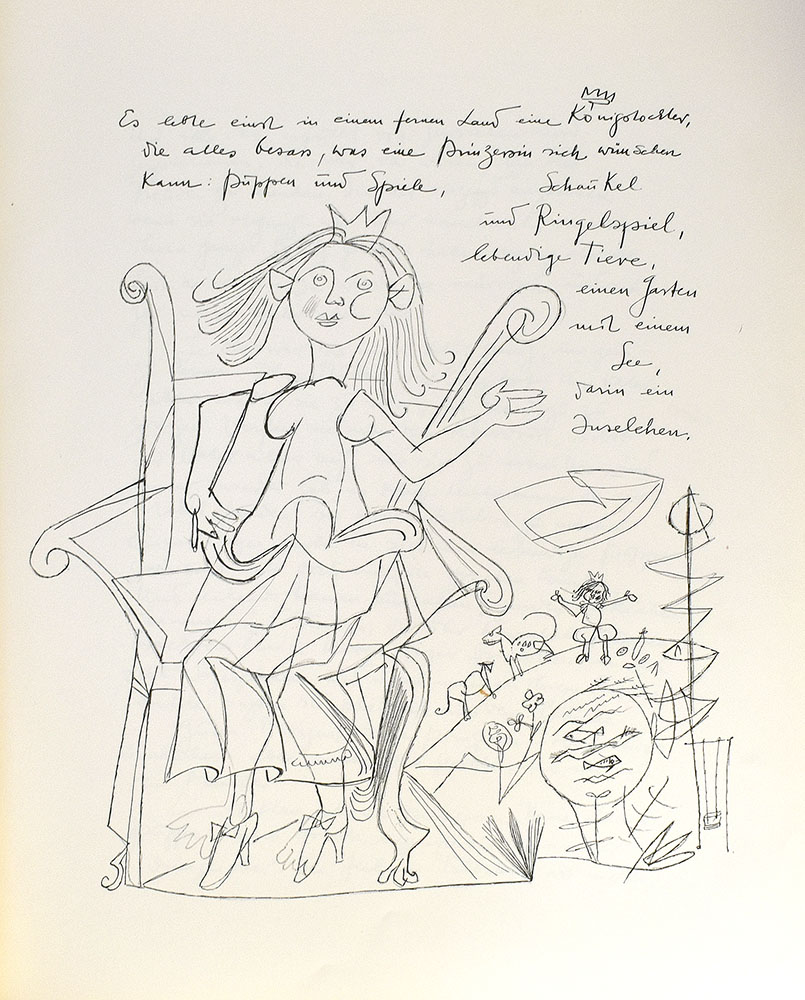 Es lebte einst in einem fernen Land eine Königstochter,
die alles besass, was eine Prinzessin sich wünschen
kann: Puppen und Spiele, Schaukel
und Ringelspiel,
lebendige Tiere,
einen Garten
mit einem
See,
darin ein
Inselchen.